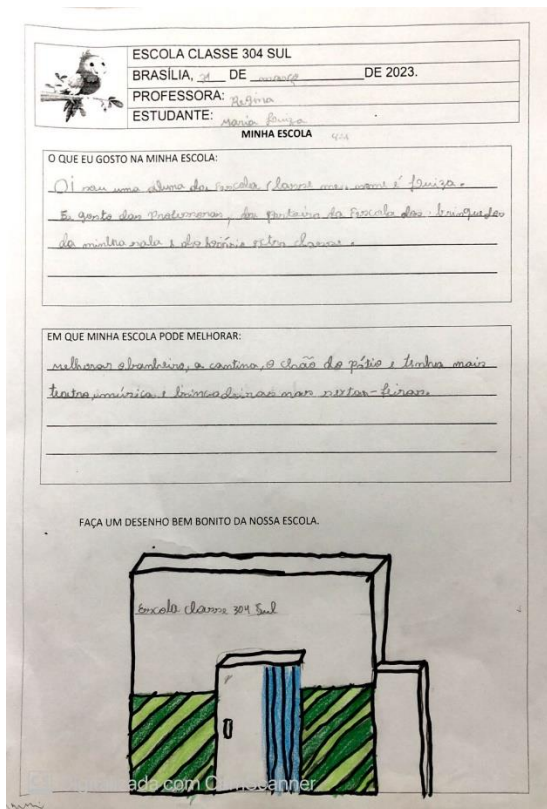 ESCOLA CLASSE 304 SUL
BRASÍLIA, 21 DE março DE 2023.
PROFESSORA: Regina
ESTUDANTE: Maria Luiza
MINHA ESCOLA
O QUE EU GOSTO NA MINHA ESCOLA:
Oi sou uma aluna da Escola Classe meu nome é Luiza.
Eu gosto das Professoras, da porteira da Escola dos brinquedos
da minha sala e do horário extra classe.
EM QUE MINHA ESCOLA PODE MELHORAR:
melhorar o banheiro, a cantina, o chão do pátio e tenha mais
teatro, música e brincadeiras nas sextas-feiras.
FAÇA UM DESENHO BEM BONITO DA NOSSA ESCOLA.
Escola classe 304 Sul
com CamScanner